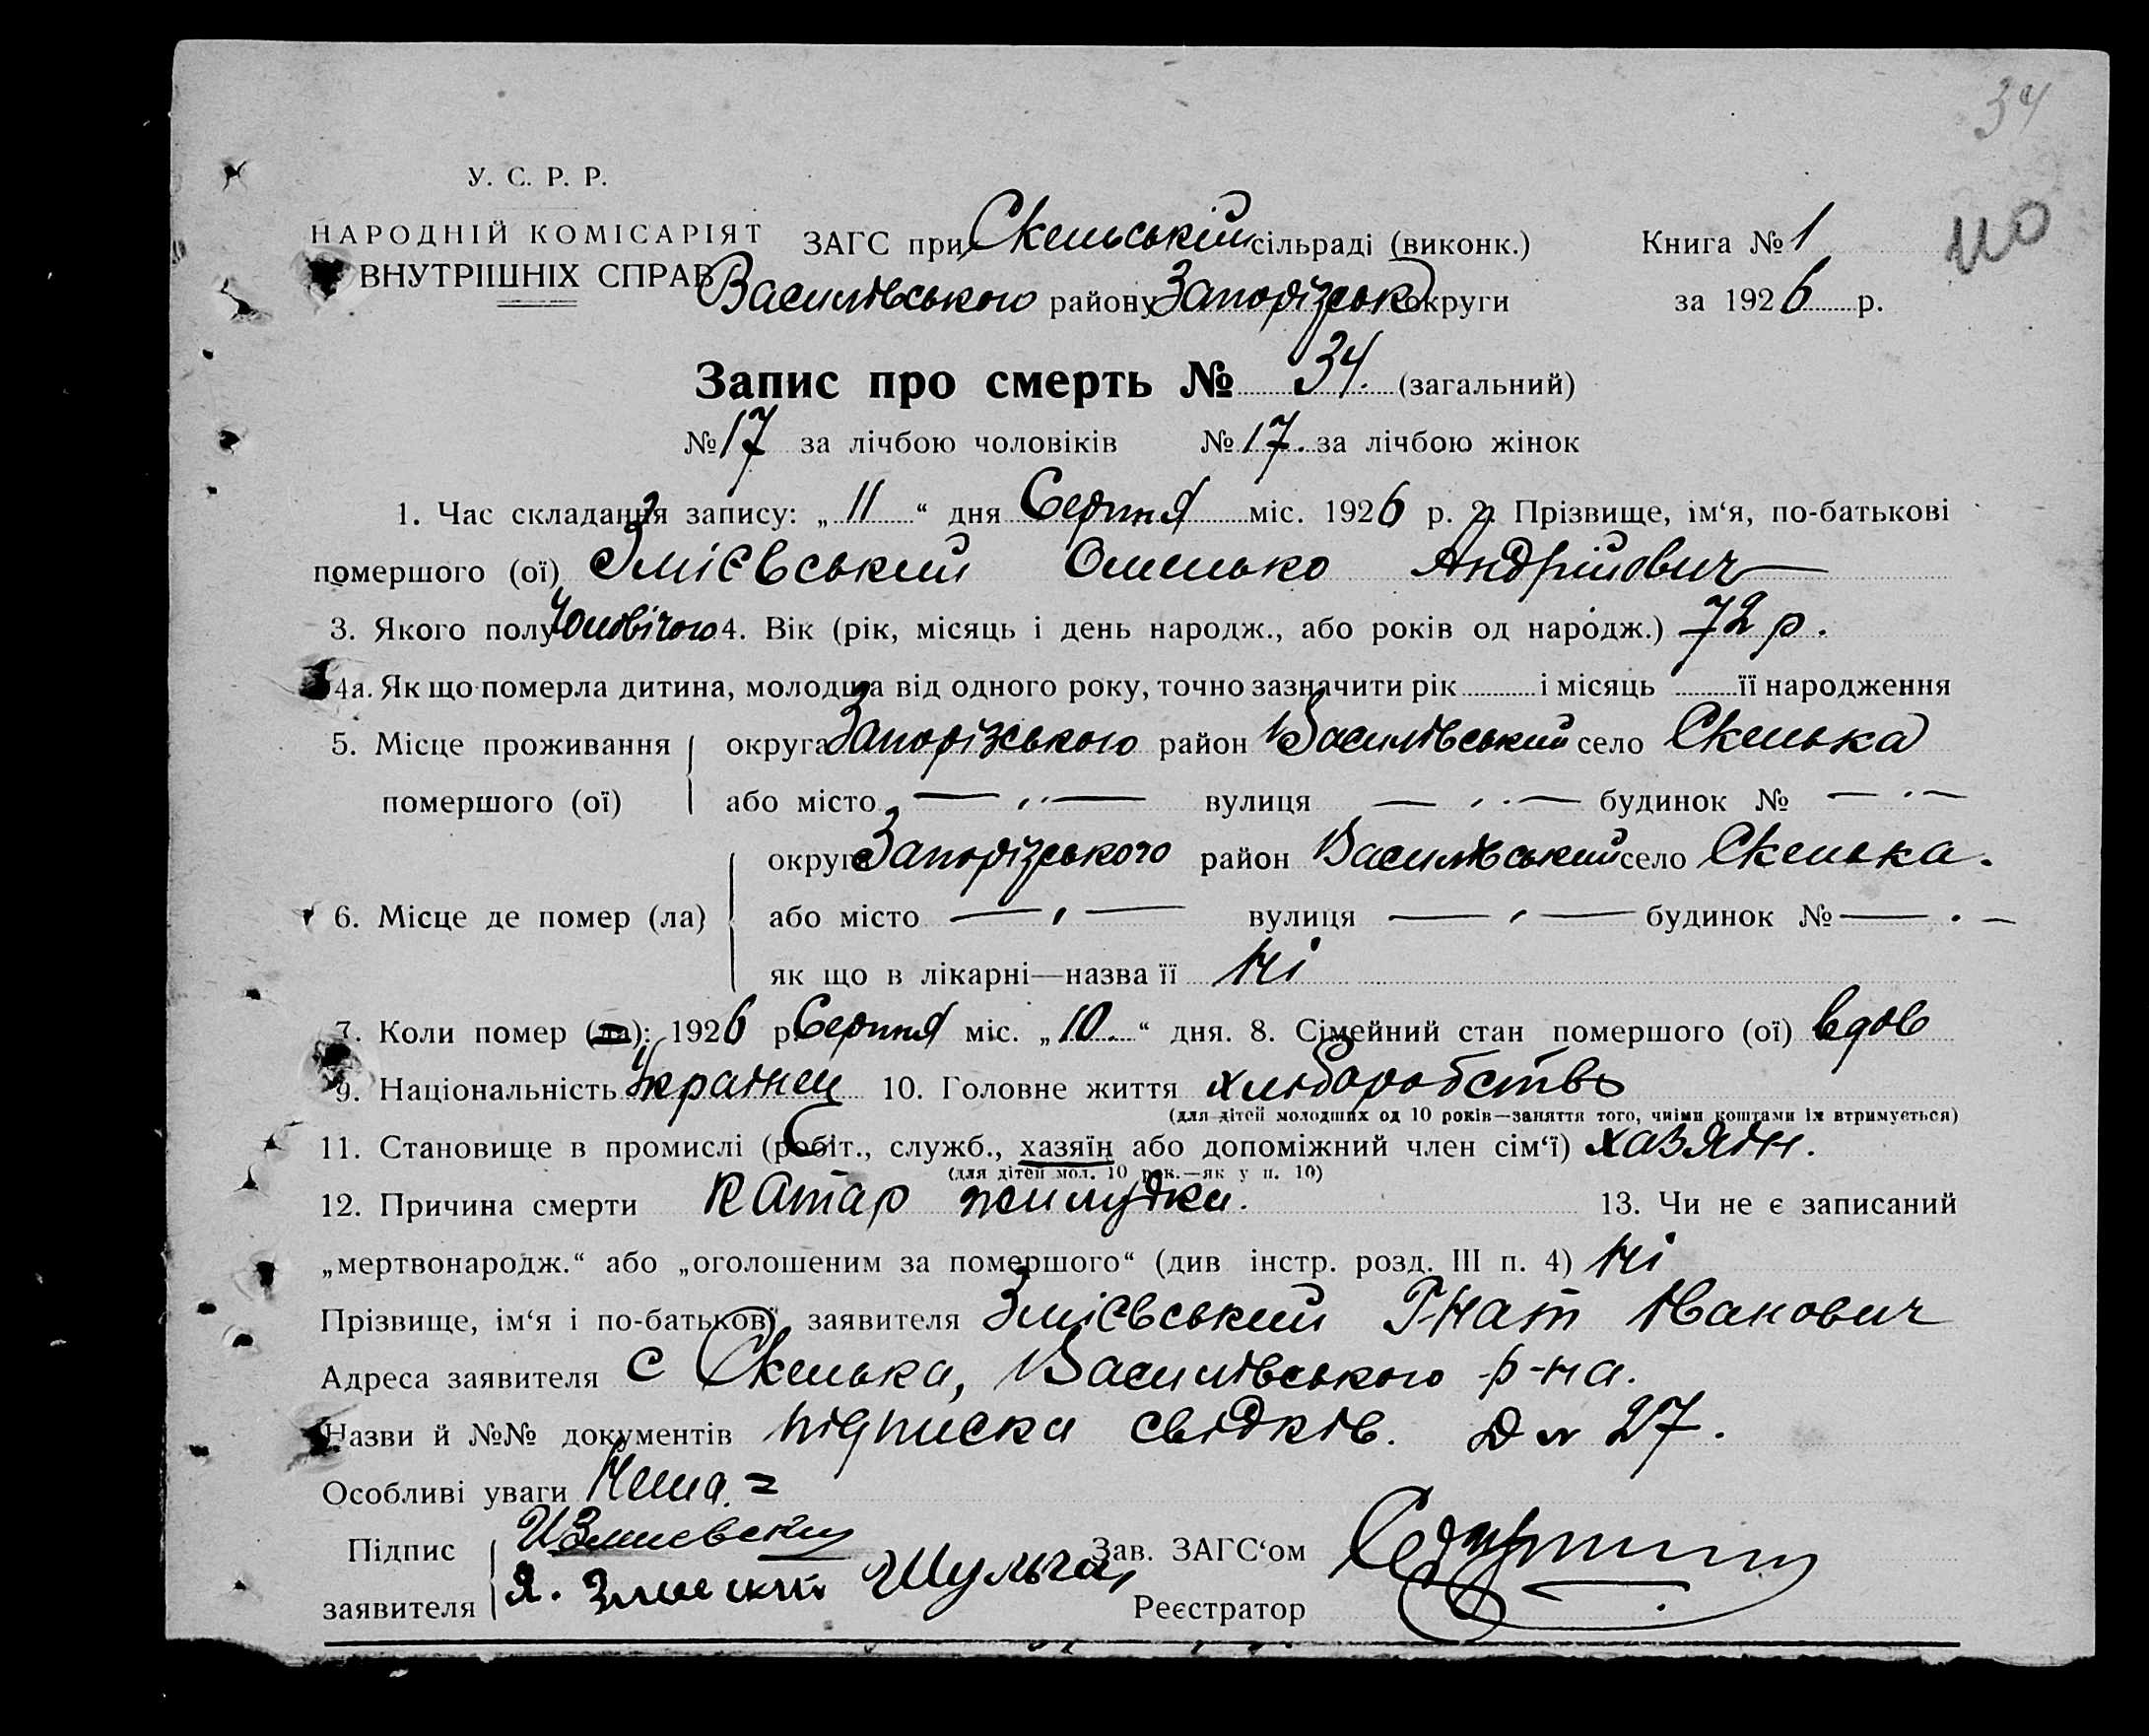 34
110
У. С. Р. Р.
НАРОДНІЙ КОМІСАРІЯТ
ВНУТРІШНІХ СПРАВ
ЗАГС при Скельській сільраді (виконк.) Книга № 1
Василівського району Запорізськ округи за 1926 р.
Запис про смерть № 34. (загальний)
№ 17 за лічбою чоловіків № 17. за лічбою жінок
1. Час складання запису: „ 11 “ дня Серпня міс. 1926 р. 2. Прізвище, ім‘я, по-батькові
помершого (ої) Змієвський Омелько Андрійович
3. Якого полу Чоловічого 4. Вік (рік, місяць і день народж., або років од народж.) 72 р.
4а. Як що померла дитина, молодша від одного року, точно зазначити рік і місяць її народження
5. Місце проживання округа Запорізського район Василівський село Скелька
помершого (ої) або місто — „ — вулиця — „ — будинок № — „ —
округа Запорізського район Василівський село Скелька.
6. Місце де помер (ла) або місто — „ — вулиця — „ — будинок № — „ —
як що в лікарні—назва її Ні
7. Коли помер (ла): 1926 р. Серпня міс. „ 10. “ дня. 8. Сімейний стан помершого (ої) вдов
9. Національність Українец 10. Головне життя хліборобство
(для дітей молодших од 10 років—заняття того, чиїми коштами їх втримується)
11. Становище в промислі (робіт., служб., хазяїн або допоміжний член сім‘ї) хазяїн.
(для дітей мол. 10 рок.—як у п. 10)
12. Причина смерти Катар жилудка. 13. Чи не є записаний
„мертвонародж.“ або „оголошеним за помершого“ (див інстр. розд. III п. 4) Ні
Прізвище, ім‘я і по-батькові заявителя Змієвський Гнат Іванович
Адреса заявителя с Скелька, Василівського р-на.
Назви й №№ документів підписка свідків. Д № 27.
Особливі уваги Нема =
Підпис И Змиевский
Зав. ЗАГС‘ом
Я. Змиеский Шульга,
заявителя Реєстратор